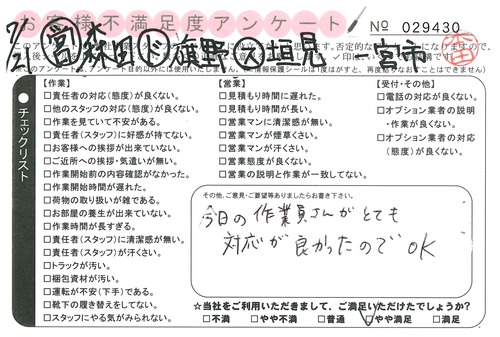 お客様不満足度アンケート
№ 029430
7/21 営 森田 リ 旗野 垣見 一宮市
も、アンケート目的以外には使用いたしません。(※情報保護シールは1度はがすと、再度貼りなおすことはできません)
チェックリスト
【作業】
□責任者の対応(態度)が良くない。
□他のスタッフの対応(態度)が良くない。
□作業を見ていて不安がある。
□責任者(スタッフ)に好感が持てない。
□お客様への挨拶が出来ていない。
□ご近所への挨拶・気遣いが無い。
□作業開始前の内容確認がなかった。
□作業開始時間が遅れた。
□荷物の取り扱いが雑である。
□お部屋の養生が出来ていない。
□作業時間が長すぎる。
□責任者(スタッフ)に清潔感が無い。
□責任者(スタッフ)が汗くさい。
□トラックが汚い。
□梱包資材が汚い。
□運転が不安(下手)である。
□靴下の履き替えをしてない。
□スタッフにやる気がみられない。
【営業】
□見積もり時間に遅れた。
□見積もり時間が長い。
□営業マンに清潔感が無い。
□営業マンが煙草くさい。
□営業マンが汗くさい。
□営業態度が良くない。
□営業の説明と作業が一致してない。
【受付・その他】
□電話の対応が良くない。
□オプション業者の説明
・作業が良くない。
□オプション業者の対応
(態度)が良くない。
その他、ご意見・ご要望等ありましたらお書き下さい。
今日の作業員さんがとても
対応が良かったのでOK
☆当社をご利用いただきまして、ご満足いただけたでしょうか?
□不満 □やや不満 □普通 □やや満足 □満足